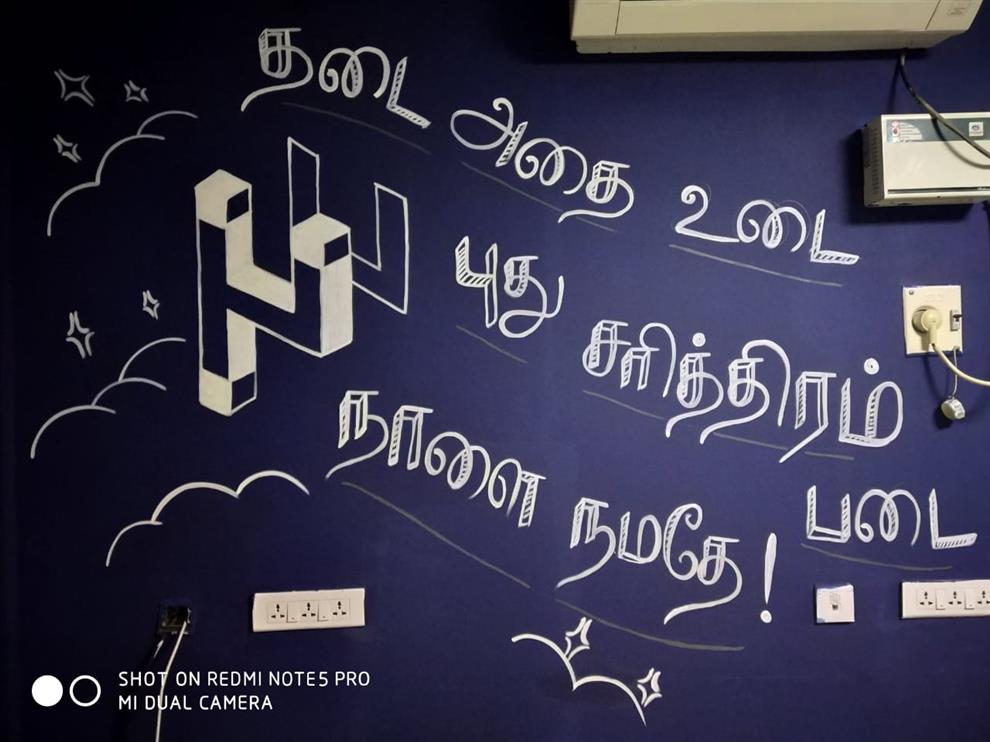 தடை அதை உடை
புது சரித்திரம் படை
நாளை நமதே!
SHOT ON REDMI NOTE5 PRO
MI DUAL CAMERA